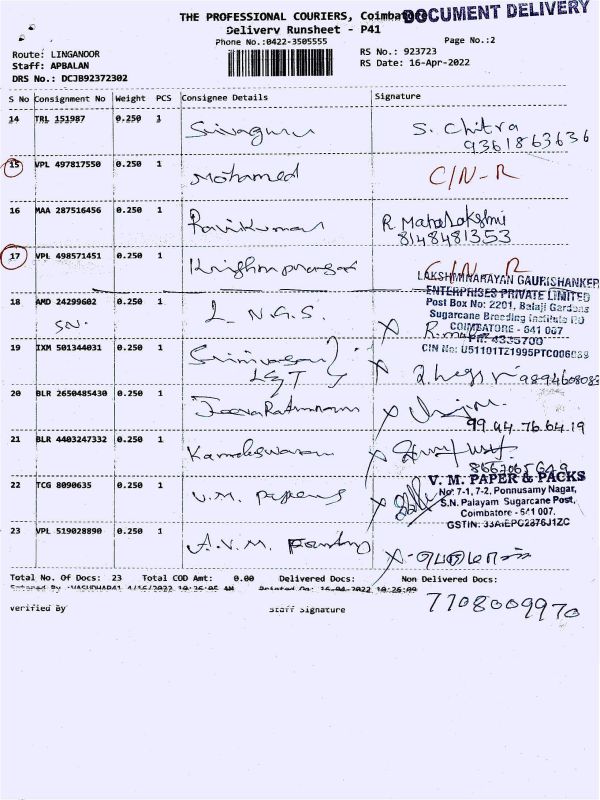 THE PROFESSIONAL COURIERS, Coimbatore
DOCUMENT DELIVERY
Delivery Runsheet - P41
Phone No.:0422-3505555
Page No.:2
Route: LINGANOOR
RS No.: 923723
Staff: APBALAN
RS Date: 16-Apr-2022
DRS No.: DCJB92372302
S No Consignment No Weight PCS Consignee Details Signature
14 TRL 151987 0.250 1 Srivaguru S. Chitra
9361863636
15 VPL 497817550 0.250 1 Mohamed C/N-R
16 MAA 287516456 0.250 1 Ravikumar R MahaLakshmi
8148481353
17 VPL 498571451 0.250 1 C/N R
LAKSHMINARAYAN GAURISHANKER
ENTERPRISES PRIVATE LIMITED
Post Box No: 2201, Balaji Gardens
Sugarcane Breeding Institute PO
COIMBATORE - 641 007
PH: 4335700
CIN No: U51101TZ1995PTC006089
18 AMD 24299602 0.250 1 L N.G.S.
SN.
19 IXM 501344031 0.250 1 Srinivasan
9894608083
20 BLR 2650485430 0.250 1 JeevaRathinam
99.94.76.64.19
21 BLR 4403247332 0.250 1 Kamaleswaran
22 TCG 8090635 0.250 1 V.M. Papers
V. M. PAPER & PACKS
No: 7-1, 7-2, Ponnusamy Nagar,
S.N. Palayam Sugarcane Post,
Coimbatore - 641 007.
GSTIN: 33AIEPC2876J1ZC
23 VPL 519028890 0.250 1 A.V.M.
Total No. Of Docs: 23 Total COD Amt: 0.00 Delivered Docs: Non Delivered Docs:
Entered By :VASUDHA041 4/16/2022 10:26:05 AM Printed On: 16-04-2022 10:26:09
7708009970
verified By Staff Signature